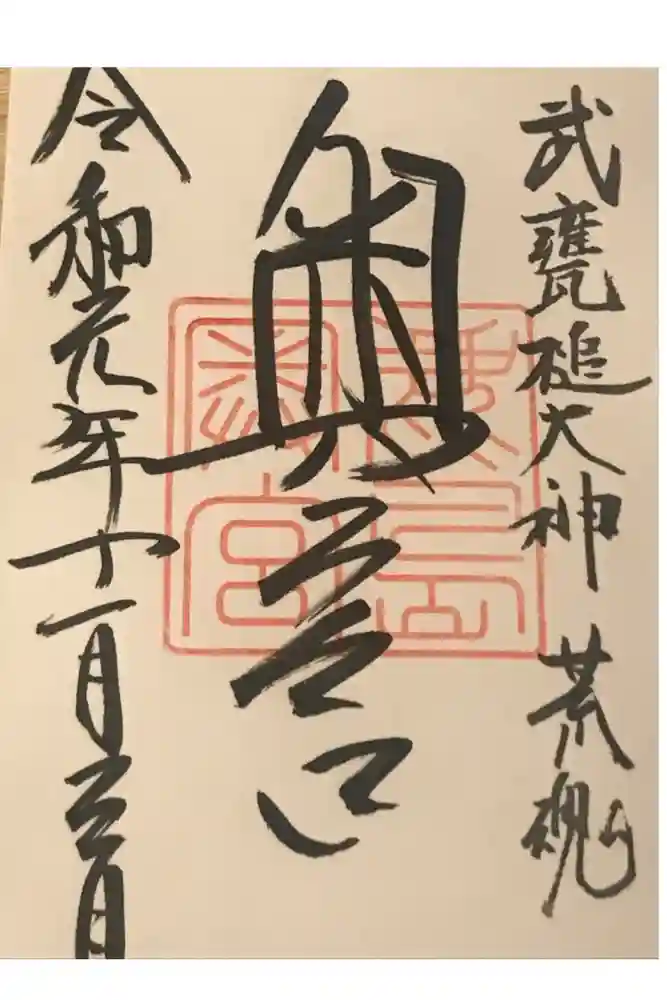 武甕槌大神 荒魂
奥宮
鹿島神宮
令和元年十一月三日